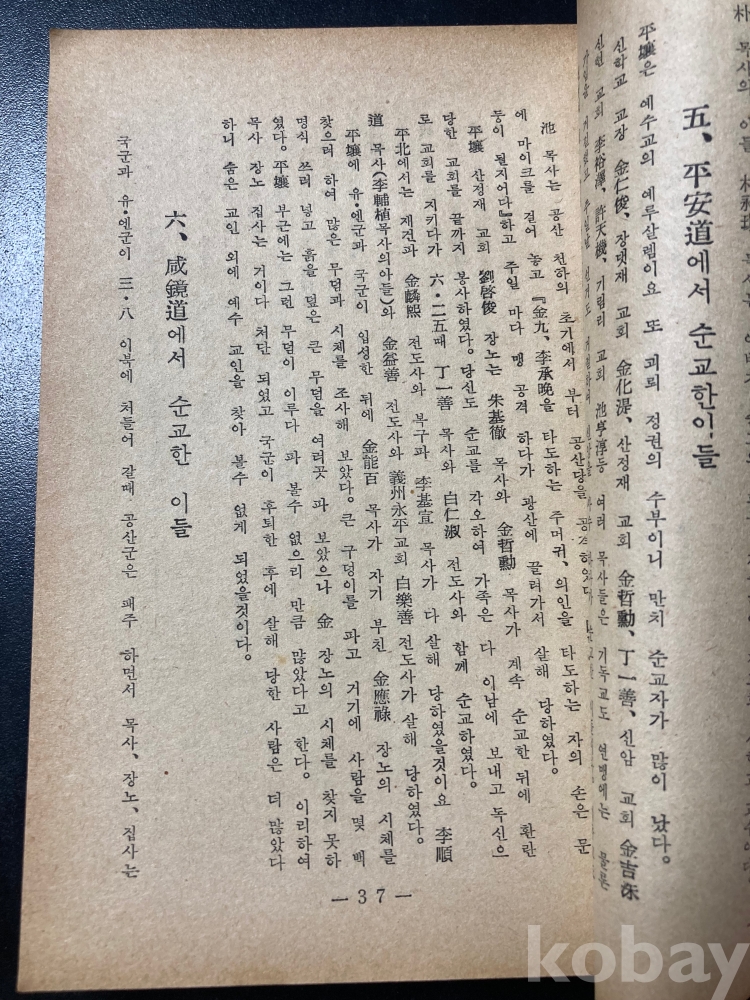 五、平安道에서 순교한이들
平壤은 예수교의 예루살렘이요 또 괴뢰 정권의 수부이니 만치 순교자가 많이 났다。
신학교 교장 金仁俊、장댓재 교회 金化湜、산정재 교회 金哲勳、丁一善、신암 교회 金吉洙
신현 교회 李裕澤、許天機、기림리 교회 池亨淳등 여러 목사들은 기독교도 연맹에는 물론
池 목사는 공산 천하의 초기에서 부터 공산당을 공격하였다
에 마이크를 걸어 놓고 『金九、李承晩을 타도하는 주먹귀、의인을 타도하는 자의 손은 문
둥이 될지어다』하고 주일 마다 맹 공격 하다가 광산에 끌려가서 살해 당하였다。
平壤 산정재 교회 劉啓俊 장노는 朱基徹 목사와 金哲勳 목사가 계속 순교한 뒤에 환란
당한 교회를 끝까지 봉사하였다。당신도 순교를 각오하여 가족은 다 이남에 보내고 독신으
로 교회를 지키다가 六・二五때 丁一善 목사와 白仁淑 전도사와 함께 순교하였다。
平北에서는 재건파 金麟熙 전도사와 복구파 李基宣 목사가 다 살해 당하였을것이요 李順
道 목사(李輔植목사의아들)와 金益善 전도사와 義州永平교회 白樂善 전도사가 살해 당하였다。
平壤에 유・엔군과 국군이 입성한 뒤에 金能百 목사가 자기 부친 金應祿 장노의 시체를
찾으려 하여 많은 무덤과 시체를 조사해 보았다。큰 구덩이를 파고 거기에 사람을 몇 백
명식 쓰러 넣고 흙을 덮은 큰 무덤을 여러곳 파 보았으나 金 장노의 시체를 찾지 못하
였다。平壤 부근에는 그런 무덤이 이루다 파 볼수 없으리 만큼 많았다고 한다。이리하여
목사 장노 집사는 거이다 처단 되었고 국군이 후퇴한 후에 살해 당한 사람은 더 많았다
하니 숨은 교인 외에 예수 교인을 찾아 볼수 없게 되었을것이다。
六、咸鏡道에서 순교한 이들
국군과 유・엔군이 三・八 이북에 처들어 갈때 공산군은 패주 하면서 목사、장노、집사는
— 37 —
kobay